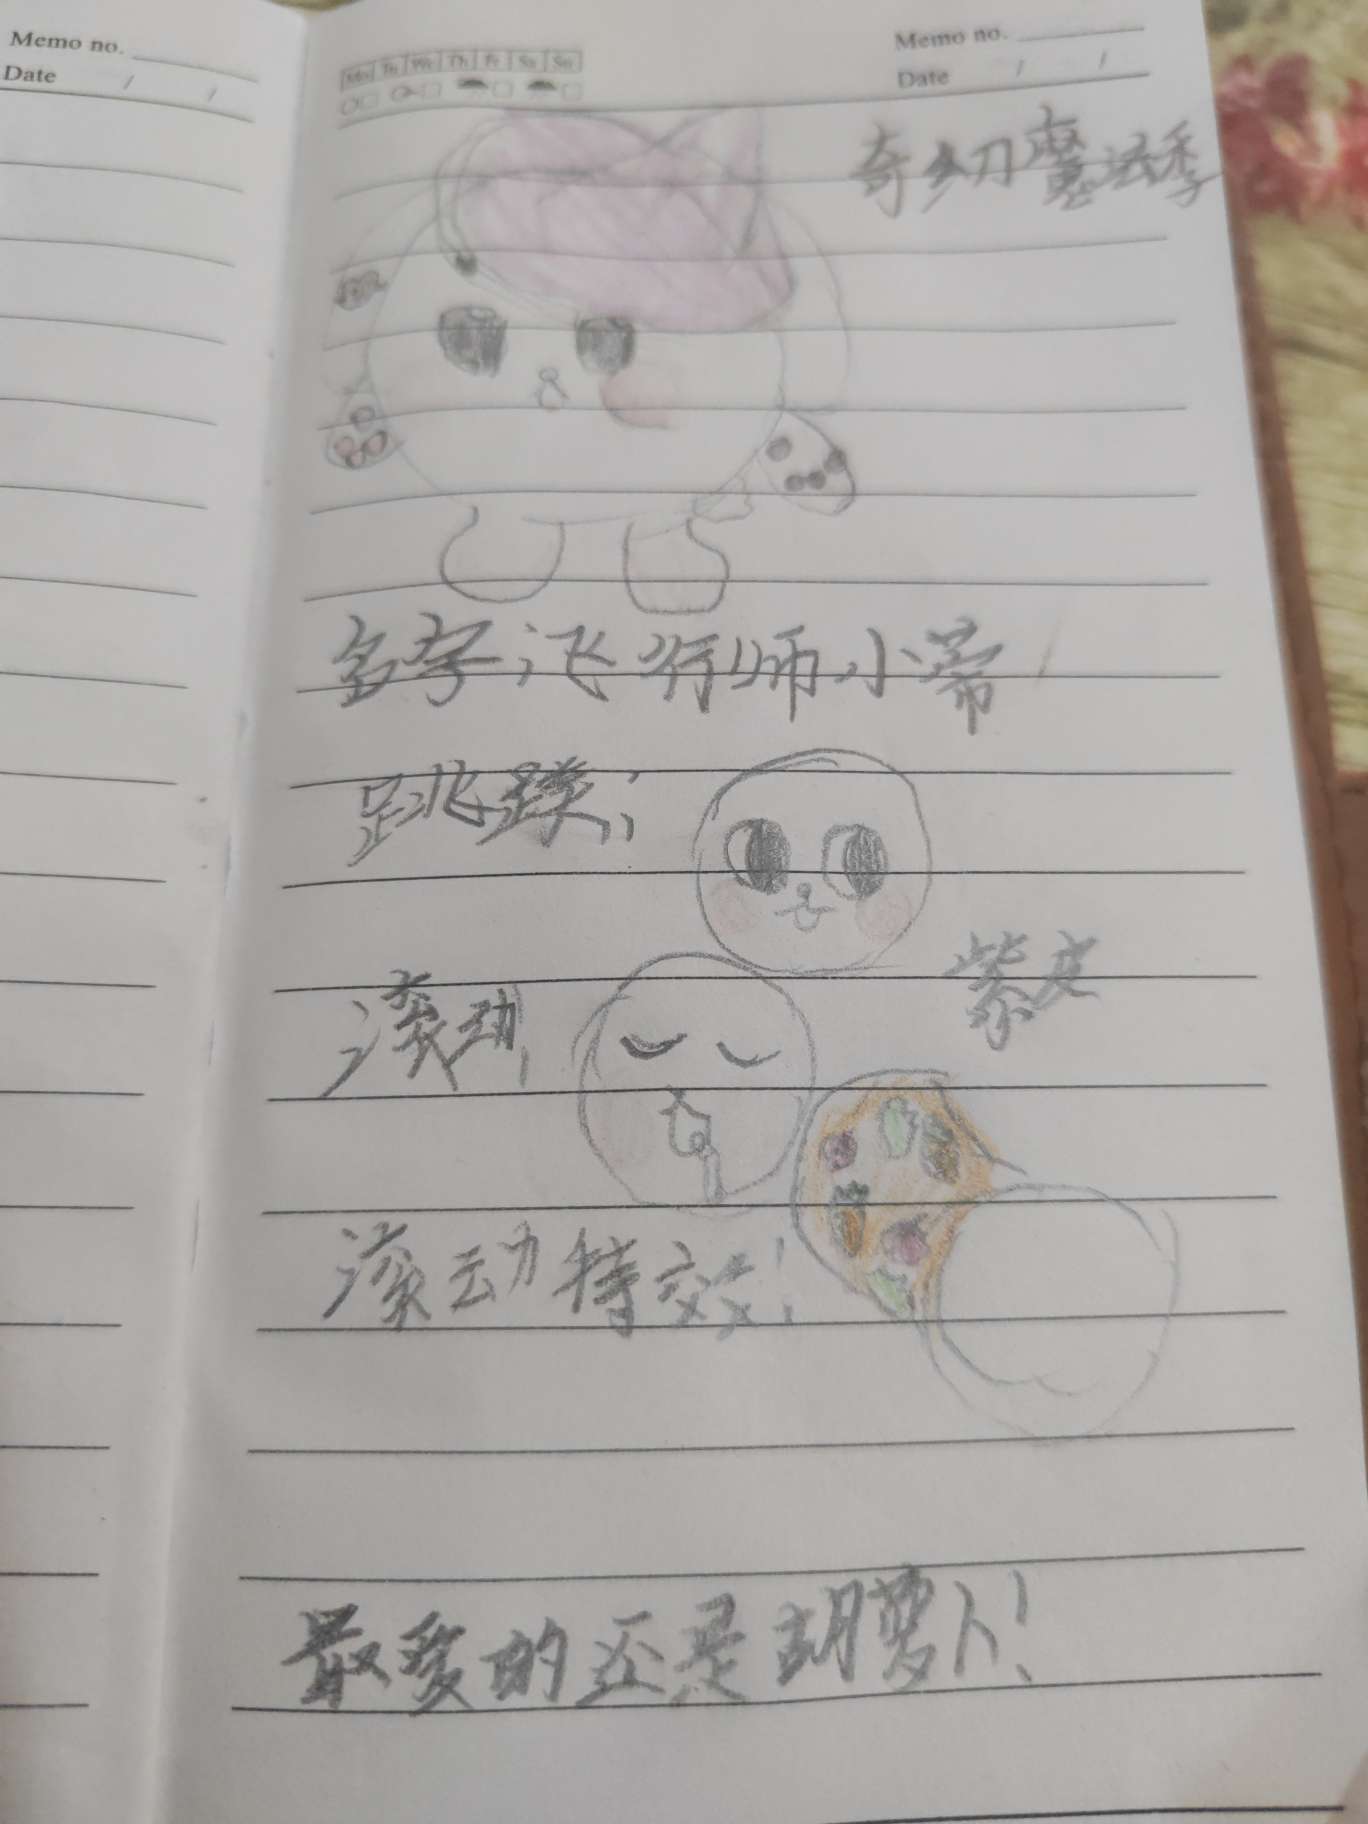 Memo no.
Date / /
Mo Tu We Th Fr Sa Su
Memo no.
Date / /
奇幻魔法季
名字:飞行师小蒂
跳蹼:
滚动
紫皮
滚动特效!
最爱的还是胡萝卜!